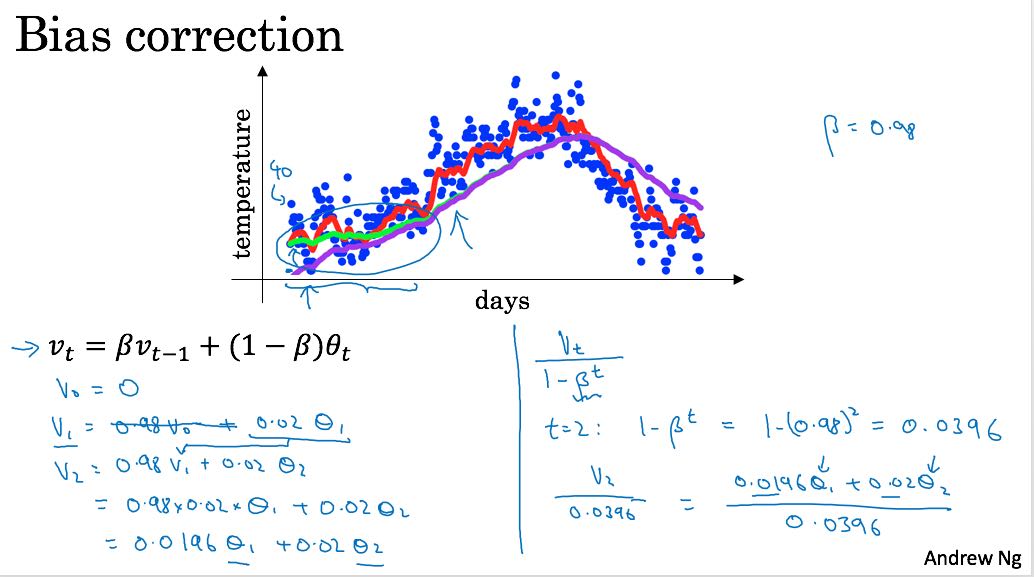 Bias correction
temperature
40
β = 0.98
days
→ vₜ = βvₜ₋₁ + (1 − β)θₜ
V₀ = 0
V₁ = 0.98 V₀ + 0.02 θ₁
V₂ = 0.98 V₁ + 0.02 θ₂
= 0.98 x 0.02 x θ₁ + 0.02 θ₂
= 0.0196 θ₁ + 0.02 θ₂
Vₜ
1 - βᵗ
t=2: 1 - βᵗ = 1 - (0.98)² = 0.0396
V₂
0.0396
=
0.0196θ₁ + 0.02θ₂
0.0396
Andrew Ng